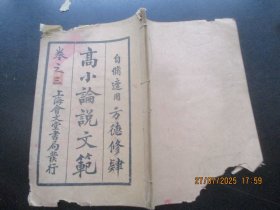 自脩適用 方德修肄
高小論說文範
卷之三 上海會文堂書局發行
27/07/2025 17:59